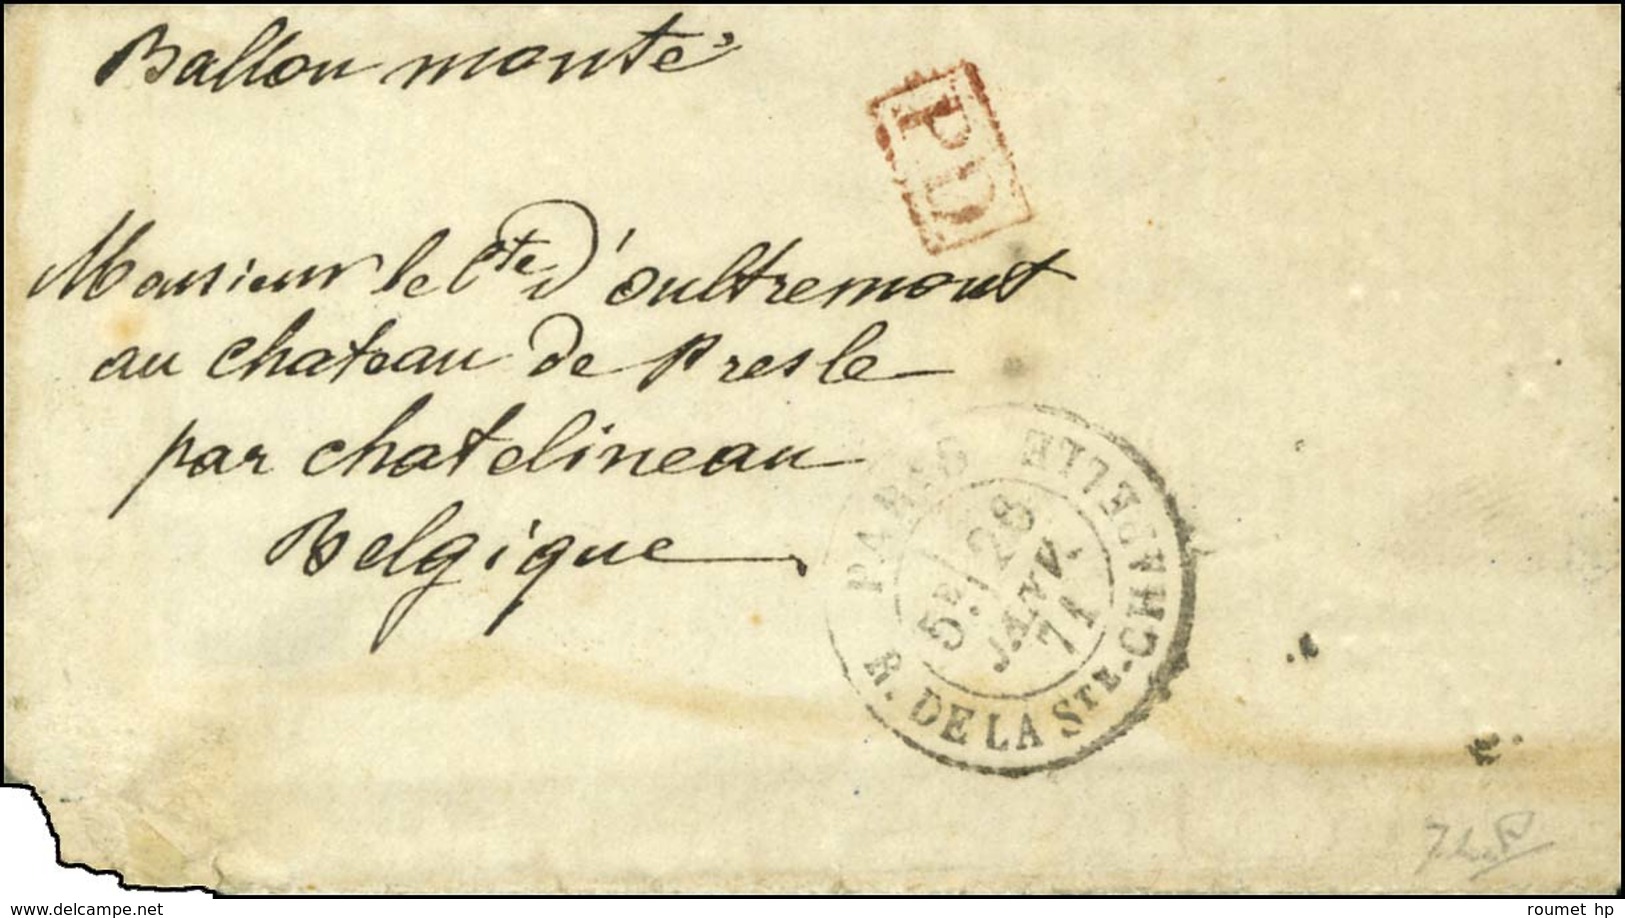 Ballon monté
PD
Monsieur le Cte D'oultremont
au chateau de Presle
par chatelineau
Belgique
PARIS
R. DE LA STE-CHAPELLE
5E/28
JANV.
71
delcampe.net
roumet hp